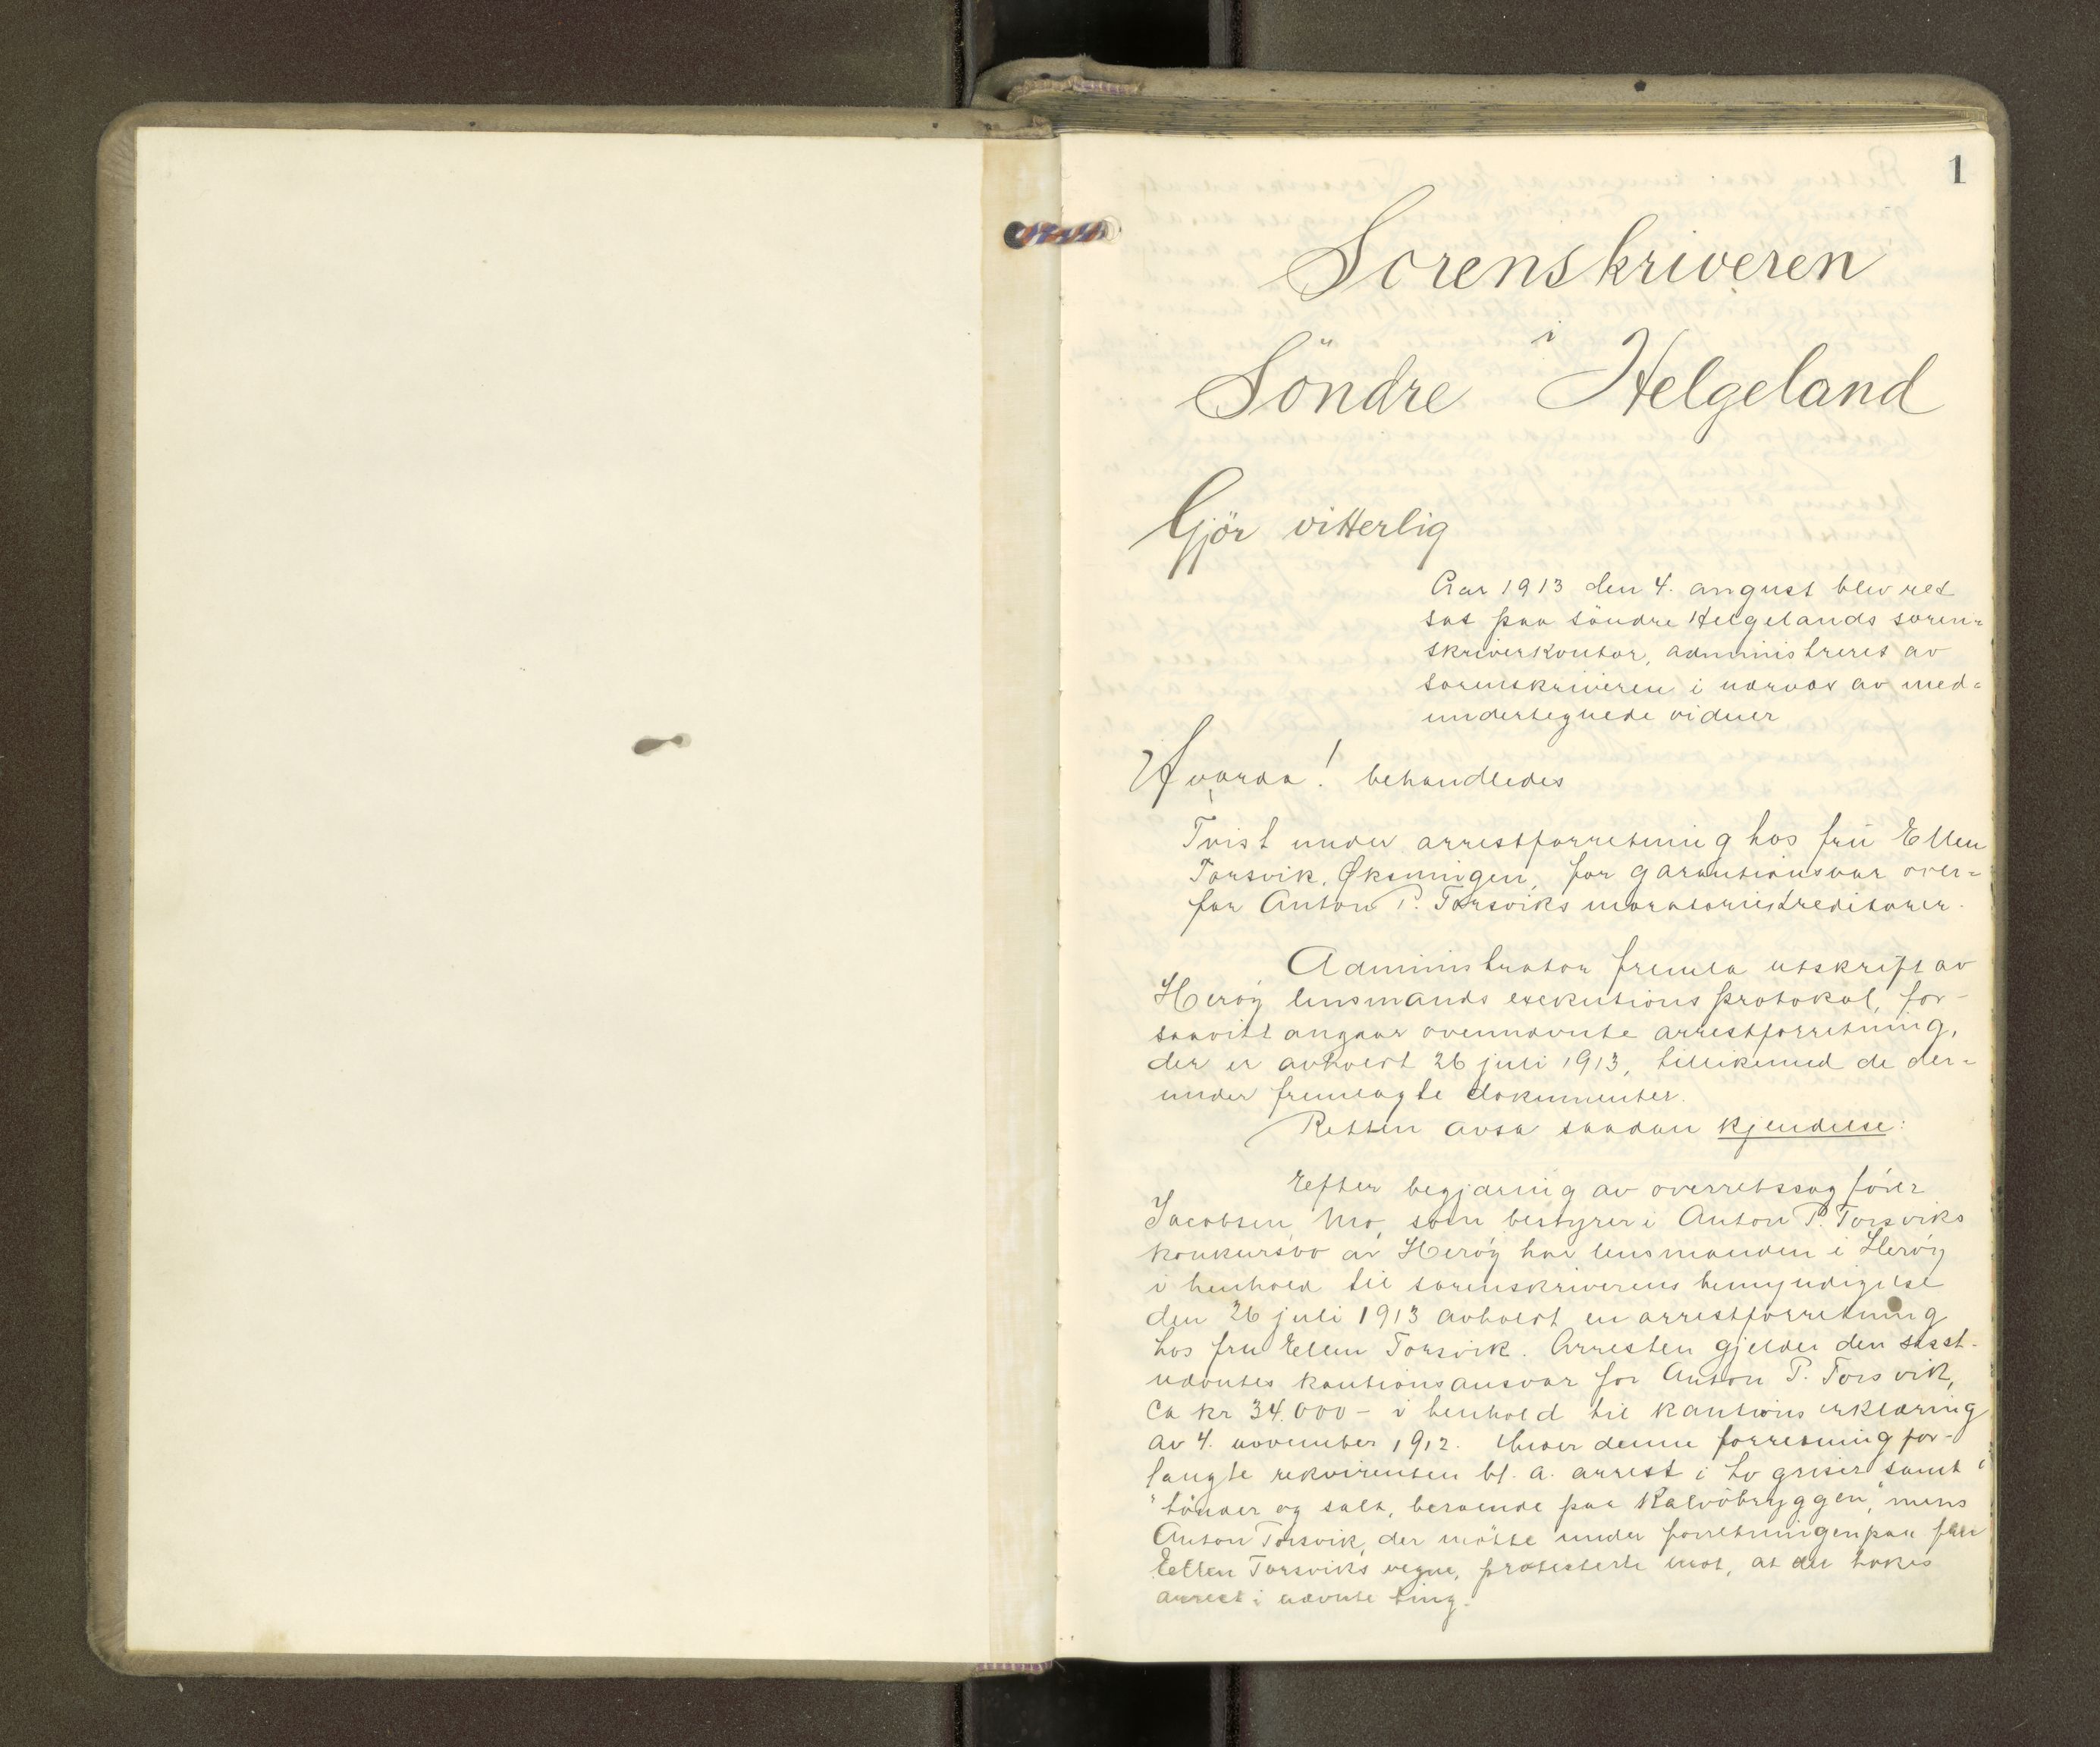 1
Sorenskriveren
i
Söndre Helgeland
Gjör vitterlig
Aar 1913 den 4. august blev ret
sat paa söndre Helgelands soren=
skriverkontor, administreret av
sorenskriveren i nærvær av med=
undertegnede vidner
Hvorda! behandledes
Tvist under arrestforretning hos frü Ellen
Torsvik, Øksningen, for garantiansvar over=
for Anton P. Torsviks moratoriekreditorer.
Administrator fremla utskrift av
Heröy lensmands exekutions protokol, for-
saavitt angaar ovennævnte arrestforretning,
der er avholdt 26 juli 1913, tillikemed de der=
under fremlagte dokumenter.
Retten avsa saadan kjendelse:
Efter begjæring av overretssagförer
Jacobsen, Mo, som bestyrer i Anton P. Torsviks
konkursbo av Heröy har lensmanden i Heröy
i henhold til sorenskriverens bemyndigelse
den 26 juli 1913 avholdt en arrestforretning
hos fru Ellen Torsvik. Arresten gjelder den sisst-
nævntes kautionsansvar for Anton P. Torsvik,
ca kr 34.000 - i henhold til kautions erklæring
av 4. november 1912. Under denne forretning for-
langte rekvirenten bl. a. arrest i to griser samt i
"tönder og salt, beroende paa Kalvöbryggen," mens
Anton Torsvik, der mötte under forretningen paa fru
Ellen Torsviks vegne, protesterte mot, at der tokes
arrest i nævnte ting.